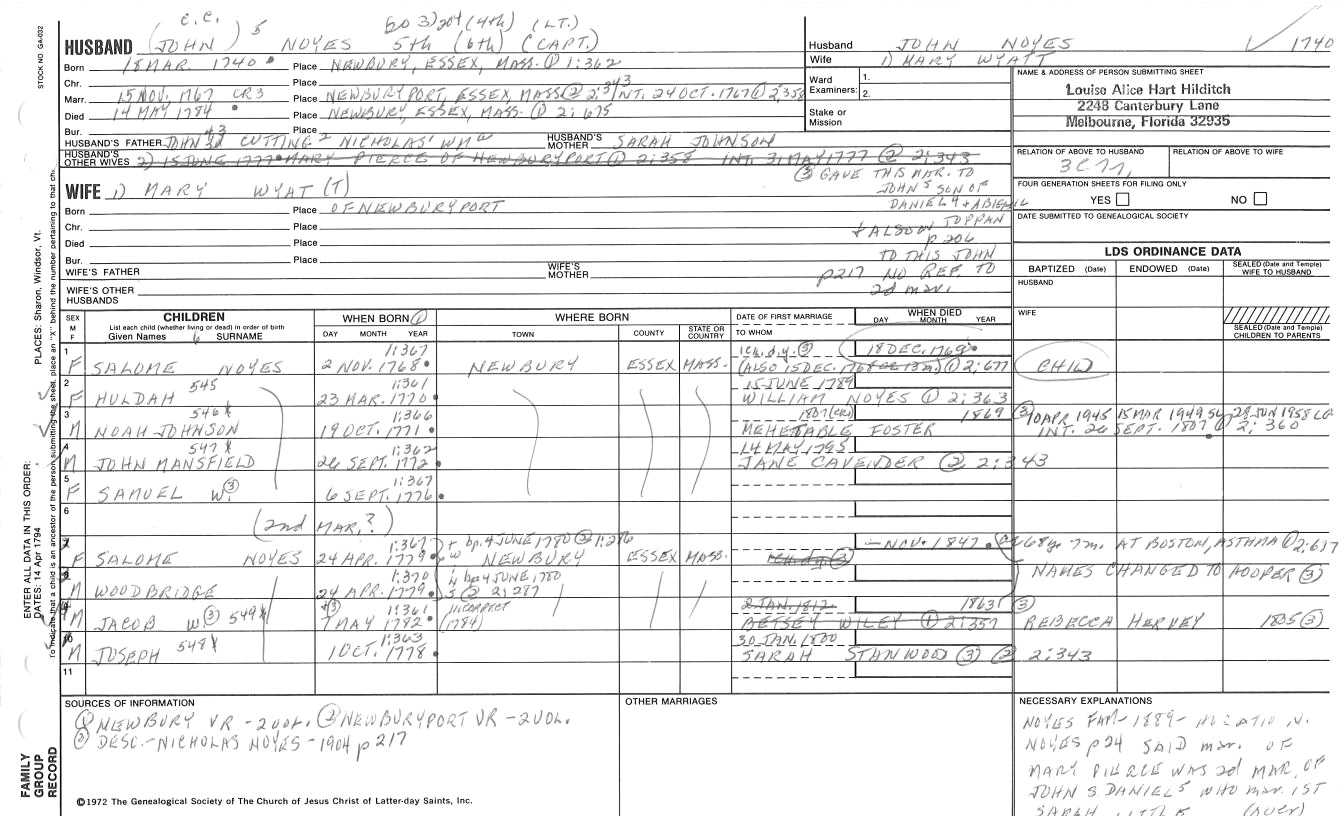 C.C. 5 3) 204 (4th) (LT.)
HUSBAND (JOHN) NOYES 5th (6th) (CAPT.)
Born 18 MAR. 1740 Place NEWBURY, ESSEX, MASS. ① 1:362
Chr. Place
Marr. 15 NOV. 1767 CR3 Place NEWBURYPORT, ESSEX, MASS ② 2:343 INT. 24 OCT. 1767 ① 2:358
Died 14 MAY 1784 Place NEWBURY, ESSEX, MASS. ① 2:675
Bur. Place
HUSBAND'S FATHER JOHN CUTTING NICHOLAS WM HUSBAND'S MOTHER SARAH JOHNSON
HUSBAND'S OTHER WIVES 2) 15 JUNE 1777 MARY PIERCE OF NEWBURYPORT ① 2:358 INT. 31 MAY 1777 ② 2:343
③ GAVE THIS MAR. TO
JOHN 5 SON OF
DANIEL 4 +
+ ALSO TOPPAN
p 206
TO THIS JOHN
p217 NO REF. TO
2d mar.
WIFE 1) MARY WYAT (T)
Born Place OF NEWBURYPORT
Chr. Place
Died Place
Bur. Place
WIFE'S FATHER WIFE'S MOTHER
WIFE'S OTHER HUSBANDS
Husband JOHN NOYES 1740
Wife 1) MARY WYATT
Ward Examiners: 1. 2.
Stake or Mission
NAME & ADDRESS OF PERSON SUBMITTING SHEET
Louise Alice Hart Hilditch
2248 Canterbury Lane
Melbourne, Florida 32935
RELATION OF ABOVE TO HUSBAND RELATION OF ABOVE TO WIFE
FOUR GENERATION SHEETS FOR FILING ONLY
YES NO
DATE SUBMITTED TO GENEALOGICAL SOCIETY
LDS ORDINANCE DATA
BAPTIZED (Date) ENDOWED (Date) SEALED (Date and Temple) WIFE TO HUSBAND
HUSBAND
WIFE
SEALED (Date and Temple) CHILDREN TO PARENTS
SEX M F CHILDREN WHEN BORN ① WHERE BORN DATE OF FIRST MARRIAGE WHEN DIED
List each child (whether living or dead) in order of birth
Given Names 6 SURNAME DAY MONTH YEAR TOWN COUNTY STATE OR COUNTRY TO WHOM DAY MONTH YEAR
1 1:367 1 ch.d.y. ③ 18 DEC. 1769
F SALOME NOYES 2 NOV. 1768 NEWBURY ESSEX MASS. (ALSO 15 DEC. ① 2:677 CHILD
2 545 1:361 15 JUNE 1789
F HULDAH 23 MAR. 1770 WILLIAM NOYES ① 2:363
3 546 1:366 1807 (CR1) 1869 ③ 10 APR 1945 15 MAR 1949
M NOAH JOHNSON 19 OCT. 1771 MEHETABLE FOSTER INT. 26 SEPT. 1807 ① 2:360
4 547 1:362 14 MAY 1795
M JOHN MANSFIELD 26 SEPT. 1772 JANE CAVENDER ② 2:343
5 1:367
F SAMUEL W. ③ 6 SEPT. 1776
6
(2nd MAR.?)
1:367 + bp. 4 JUNE 1780 ② 1:276 — NOV. 1847
F SALOME NOYES 24 APR. 1779 W NEWBURY ESSEX MASS. 1 ch.d.y. ③ 68y. 7m. AT BOSTON, ASTHMA ① 2:677
1:370 bp 4 JUNE 1780
M WOODBRIDGE 24 APR. 1779 ② 2:287 NAMES CHANGED TO HOOPER ③
1:361 INCORRECT 2 JAN. 1812 1863 ③
M JACOB W ③ 549 7 MAY 1782 (1784) BETSEY WILEY ① 2:357 REBECCA HERVEY 1835 ③
10 548 1:363 30 JAN. 1800
M JOSEPH 1 OCT. 1778 SARAH STANWOOD ③ ② 2:343
11
SOURCES OF INFORMATION OTHER MARRIAGES NECESSARY EXPLANATIONS
① NEWBURY VR - 2 VOL. ② NEWBURYPORT VR - 2 VOL.
③ DESC. - NICHOLAS NOYES - 1904 p 217
NOYES FAM - 1889 - HORATIO N.
NOYES p24 SAID mar. OF
MARY PIERCE WAS 2d MAR. OF
JOHN 5 DANIELS WHO mar. 1ST
SARAH LITTLE (OVER)
©1972 The Genealogical Society of The Church of Jesus Christ of Latter-day Saints, Inc.
STOCK NO. GA-032
PLACES: Sharon, Windsor, Vt.
ENTER ALL DATA IN THIS ORDER:
DATES: 14 Apr 1794
To indicate that a child is an ancestor of the person submitting the sheet, place an "X" behind the number pertaining to that
FAMILY GROUP RECORD